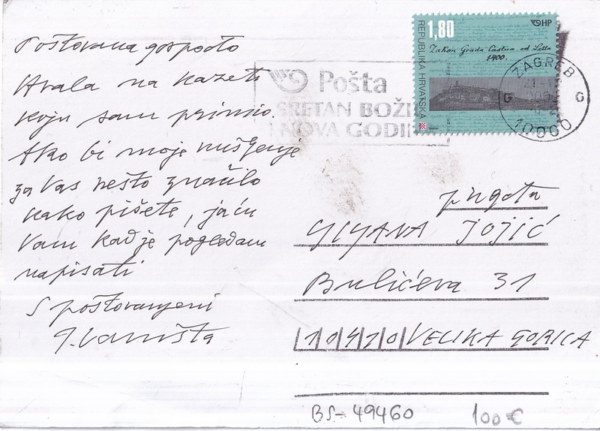 Poštovana gospođo
Hvala na kazeti
koju sam primio.
Ako bi moje mišljenje
za Vas nešto značilo
kako pišete, ja ću
Vam kad je pogledam
napisati
S poštovanjem
1,80
HP
REPUBLIKA HRVATSKA
Zakon Grada Kastva od Leta
1400.
ZAGREB
G G
10000
Pošta
SRETAN BOŽIĆ
I NOVA GODINA
JOJIĆ
Bulićeva 31
10410 VELIKA GORICA
BS-49460
100 €